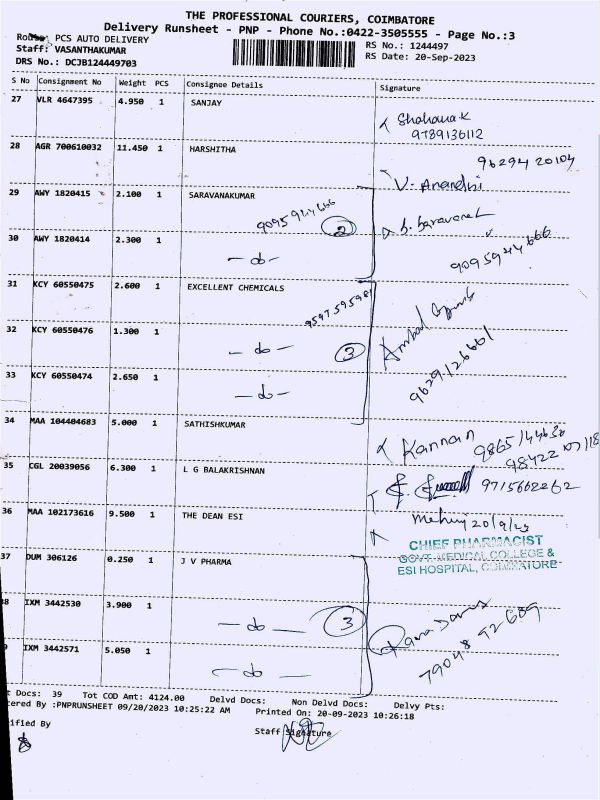 THE PROFESSIONAL COURIERS, COIMBATORE
Delivery Runsheet - PNP - Phone No.:0422-3505555 - Page No.:3
PCS AUTO DELIVERY
RS No.: 1244497
Staff: VASANTHAKUMAR
RS Date: 20-Sep-2023
DRS No.: DCJB124449703
S No Consignment No Weight PCS Consignee Details Signature
27 VLR 4647395 4.950 1 SANJAY
Shahana K
9789136112
28 AGR 700610032 11.450 1 HARSHITHA
96294 20104
V. Anandhi
29 AWY 1820415 2.100 1 SARAVANAKUMAR
9095944666
2
30 AWY 1820414 2.300 1
- do -
9095944666
31 KCY 60550475 2.600 1 EXCELLENT CHEMICALS
32 KCY 60550476 1.300 1
- do - 3
9629126661
33 KCY 60550474 2.650 1
- do -
34 MAA 104404683 5.000 1 SATHISHKUMAR
Kannan
35 CGL 20039056 6.300 1 L G BALAKRISHNAN
9715662262
36 MAA 102173616 9.500 1 THE DEAN ESI
20/9/23
CHIEF PHARMACIST
GOVT. MEDICAL COLLEGE &
ESI HOSPITAL, COIMBATORE
37 DUM 306126 0.250 1 J V PHARMA
8 IXM 3442530 3.900 1
- do - 3
79048 92689
IXM 3442571 5.050 1
- do -
t Docs: 39 Tot COD Amt: 4124.00 Delvd Docs: Non Delvd Docs: Delvy Pts:
tered By :PNPRUNSHEET 09/20/2023 10:25:22 AM Printed On: 20-09-2023 10:26:18
ified By
Staff Signature